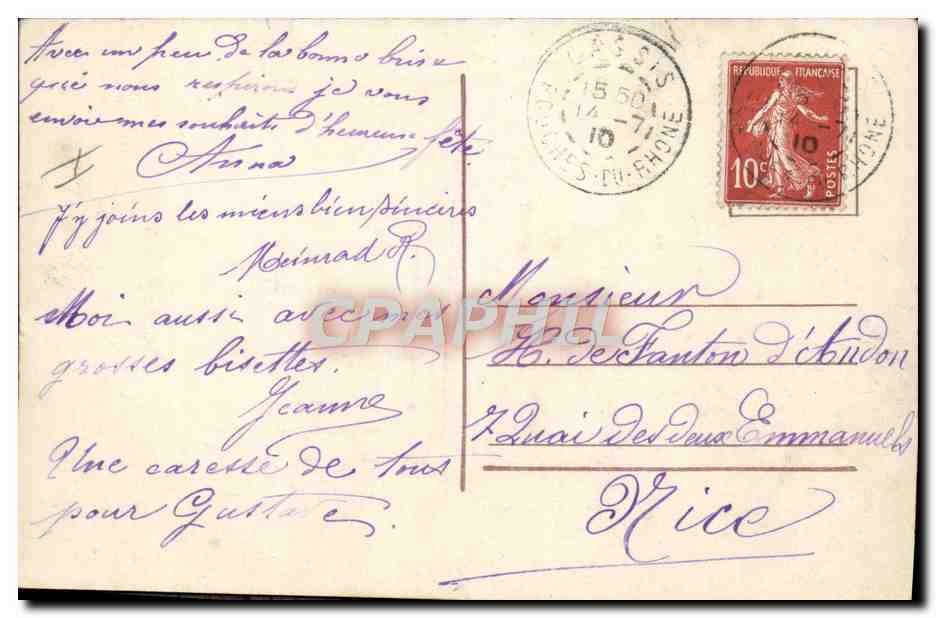 Avec un peu de la bonne brise
que nous respirons je vous
envoie mes souhaits d'heureuse fête.
Anna
J'y joins les miens bien sincères
Meinrad R.
Moi aussi avec mes
grosses bisettes.
Jeanne
Une caresse de tous
pour Gustave.
CASSIS
15 50
14 -7
10
BOUCHES-DU-RHONE
REPUBLIQUE FRANÇAISE
10c
POSTES
10
RHONE
Monsieur
H. de Fanton d'Andon
7 Quai des deux Emmanuels
Nice
CPAPHIL